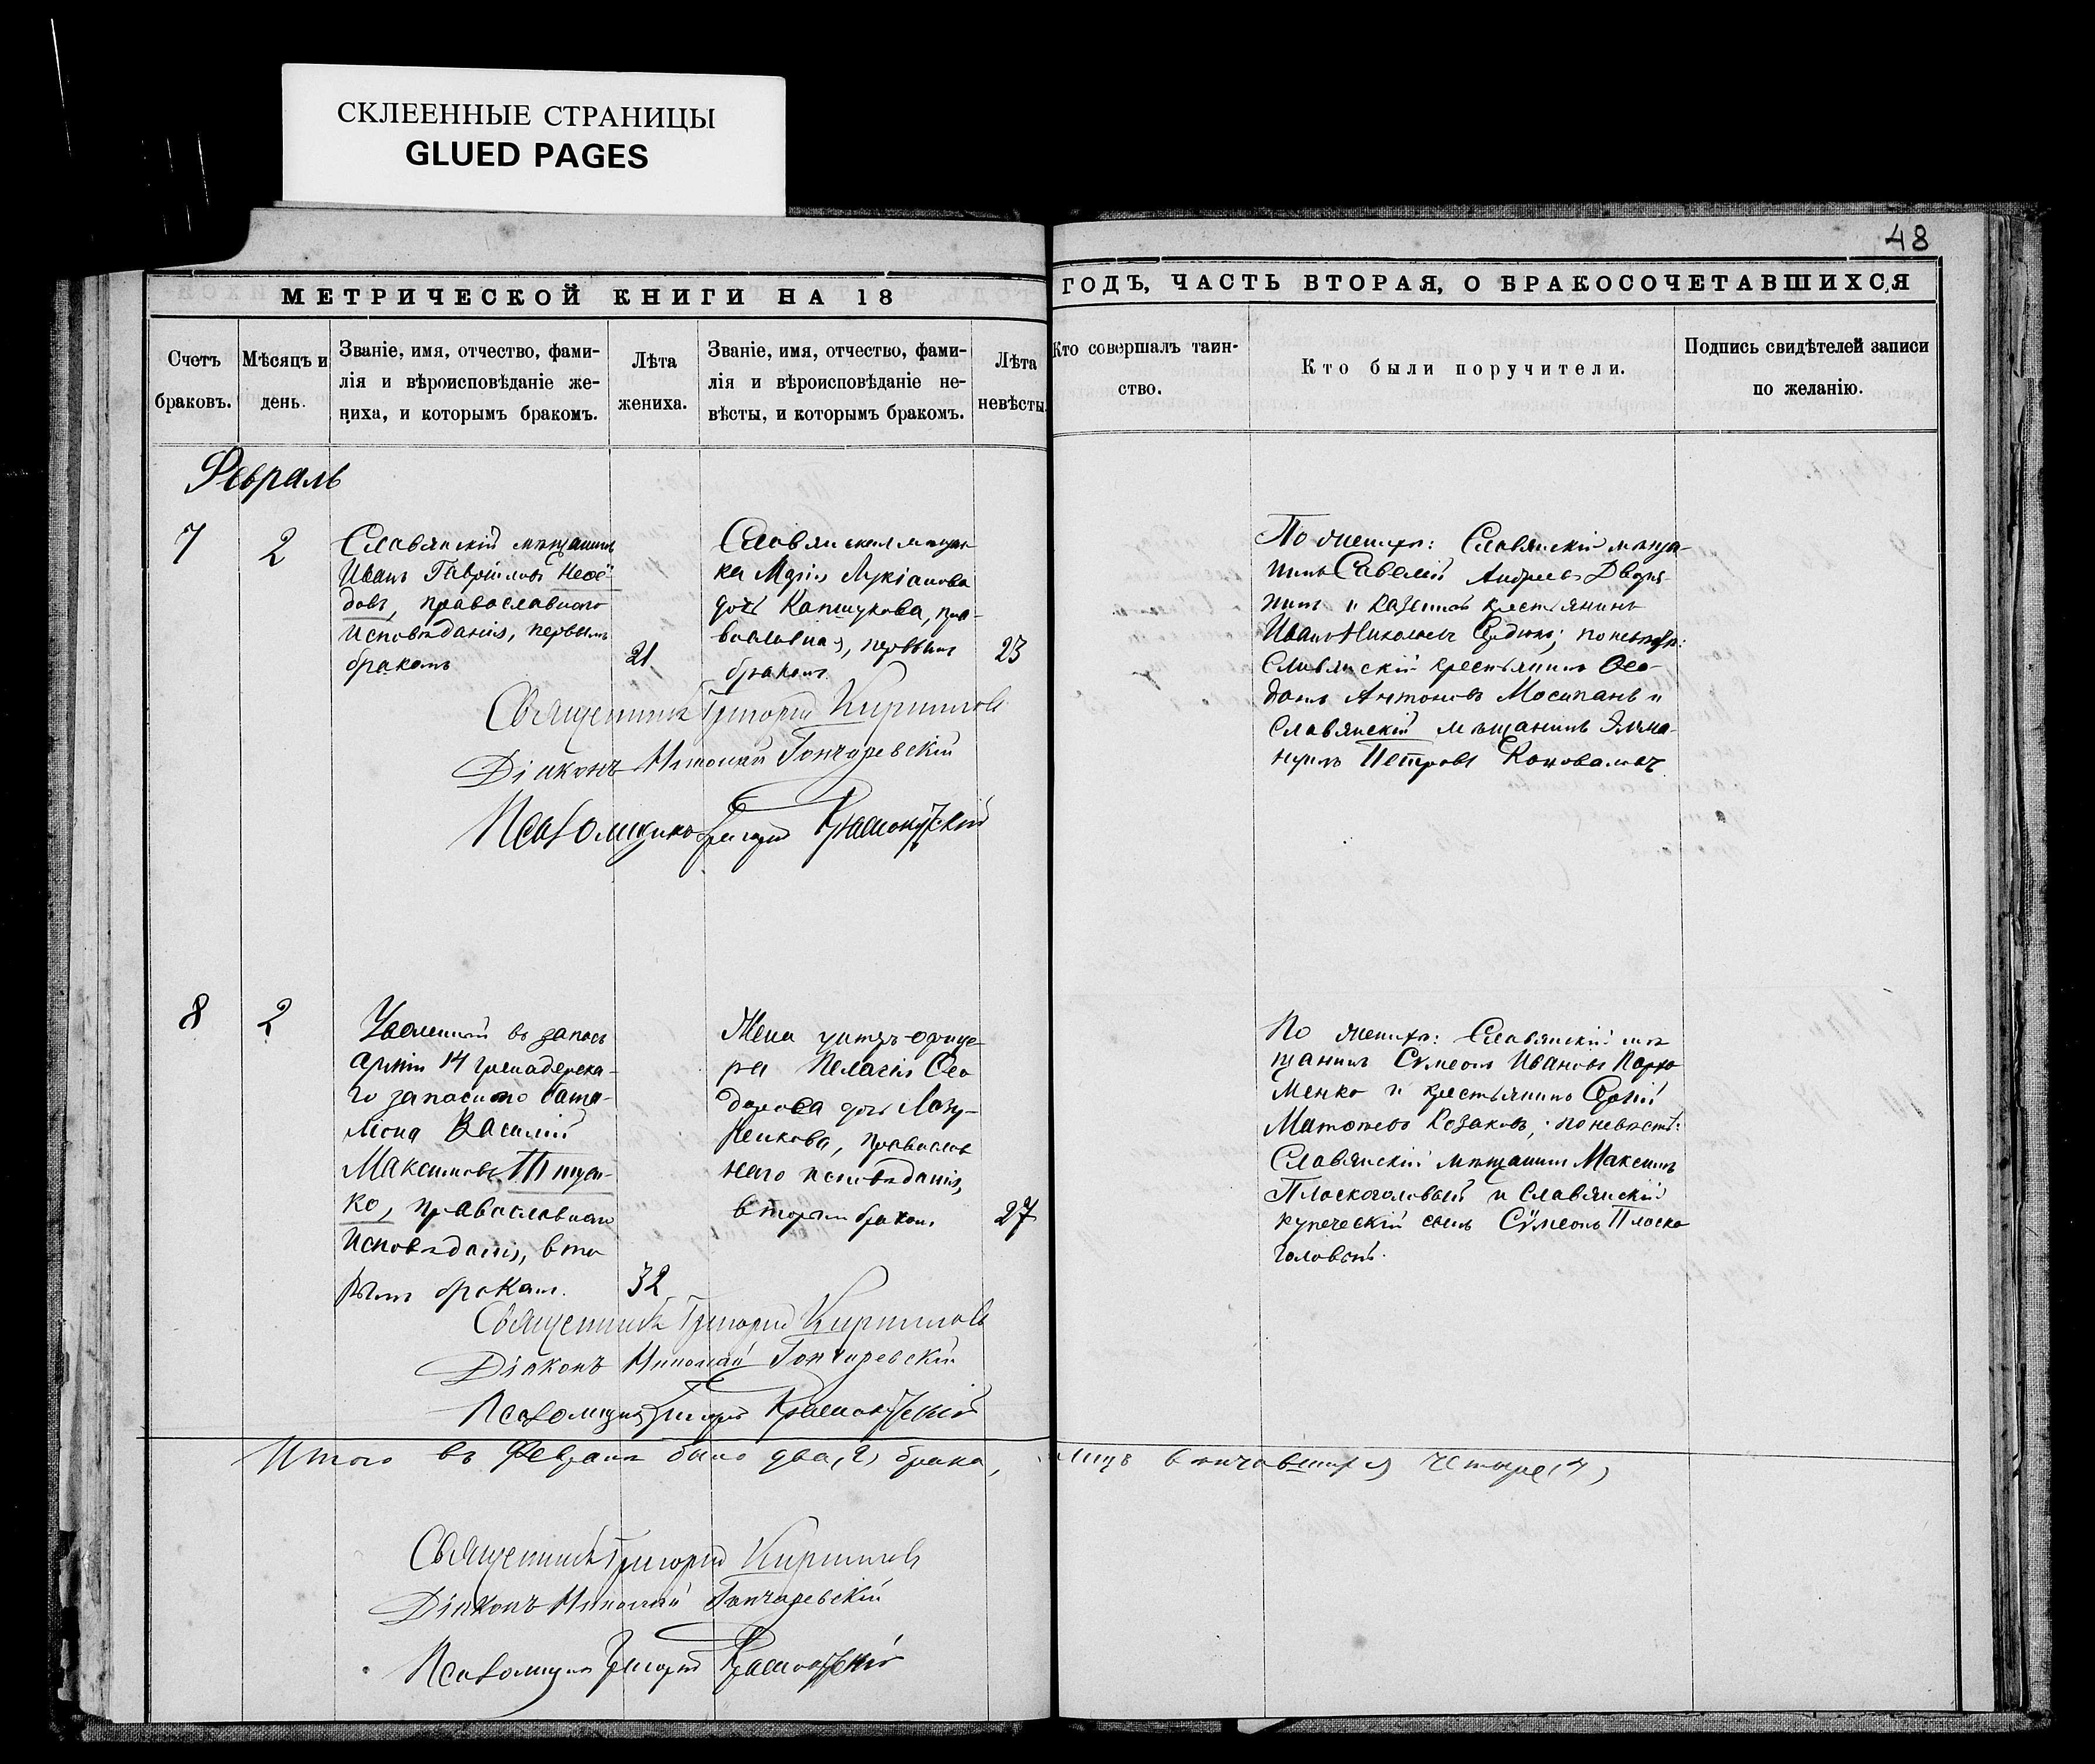 СКЛЕЕННЫЕ СТРАНИЦЫ
GLUED PAGES
48
МЕТРИЧЕСКОЙ КНИГИ НА 18
ГОДЪ, ЧАСТЬ ВТОРАЯ, О БРАКОСОЧЕТАВШИХСЯ
Счетъ
браковъ.
Мѣсяцъ и
день.
Званіе, имя, отчество, фами-
лія и вѣроисповѣданіе же-
ниха, и которымъ бракомъ.
Лѣта
жениха.
Званіе, имя, отчество, фами-
лія и вѣроисповѣданіе не-
вѣсты, и которымъ бракомъ.
Лѣта
невѣсты.
Кто совершалъ таин-
ство.
Кто были поручители.
Подпись свидѣтелей записи
по желанію.
Февраль
7
2
Славянскій мѣщанинъ
Иванъ Гавріиловъ
православнаго
исповѣданія, первымъ
бракомъ
21
Славянская мѣщан-
ка Марія Лукіанова
дочь Капшукова, пра-
вославная, первымъ
бракомъ.
23
По женихѣ: Славянскій мѣща-
нинъ Савелій Андреевъ Дворя-
нинъ и казенный крестьянинъ
Иванъ Николаевъ по невѣстѣ:
Славянскій крестьянинъ Ѳео-
данъ Антоновъ Мосипанъ и
Славянскій мѣщанинъ Эмма-
нуилъ Петровъ Коноваловъ
Священникъ Григорій Кирилловъ
Діаконъ Николай Гончаревскій
Псаломщикъ Григорій
8
2
Уволенный въ запасъ
арміи 14 гренадерска-
го запаснаго бата-
ліона Василій
Максимовъ
ко, православнаго
исповѣданія, вто
рымъ бракомъ.
32
Жена унтеръ-офице-
ра Пелагія Ѳео
дорова дочь Лазу-
ренкова, православ
наго исповѣданія,
вторымъ бракомъ.
27
По женихѣ: Славянскій мѣ
щанинъ Сѵмеонъ Ивановъ Пархо
менко и крестьянинъ Сергій
Матѳеевъ Козаковъ, по невѣстѣ:
Славянскій мѣщанинъ Максимъ
Плоскоголовый и Славянскій
купеческій сынъ Сѵмеонъ Плоско
головый.
Священникъ Григорій Кирилловъ
Діаконъ Николай Гончаревскій
Псаломщикъ Григорій
Итого въ Февралѣ было два (2) брака, лицъ вѣнчавшихся четыре (4)
Священникъ Григорій Кирилловъ
Діаконъ Николай Гончаревскій
Псаломщикъ Григорій